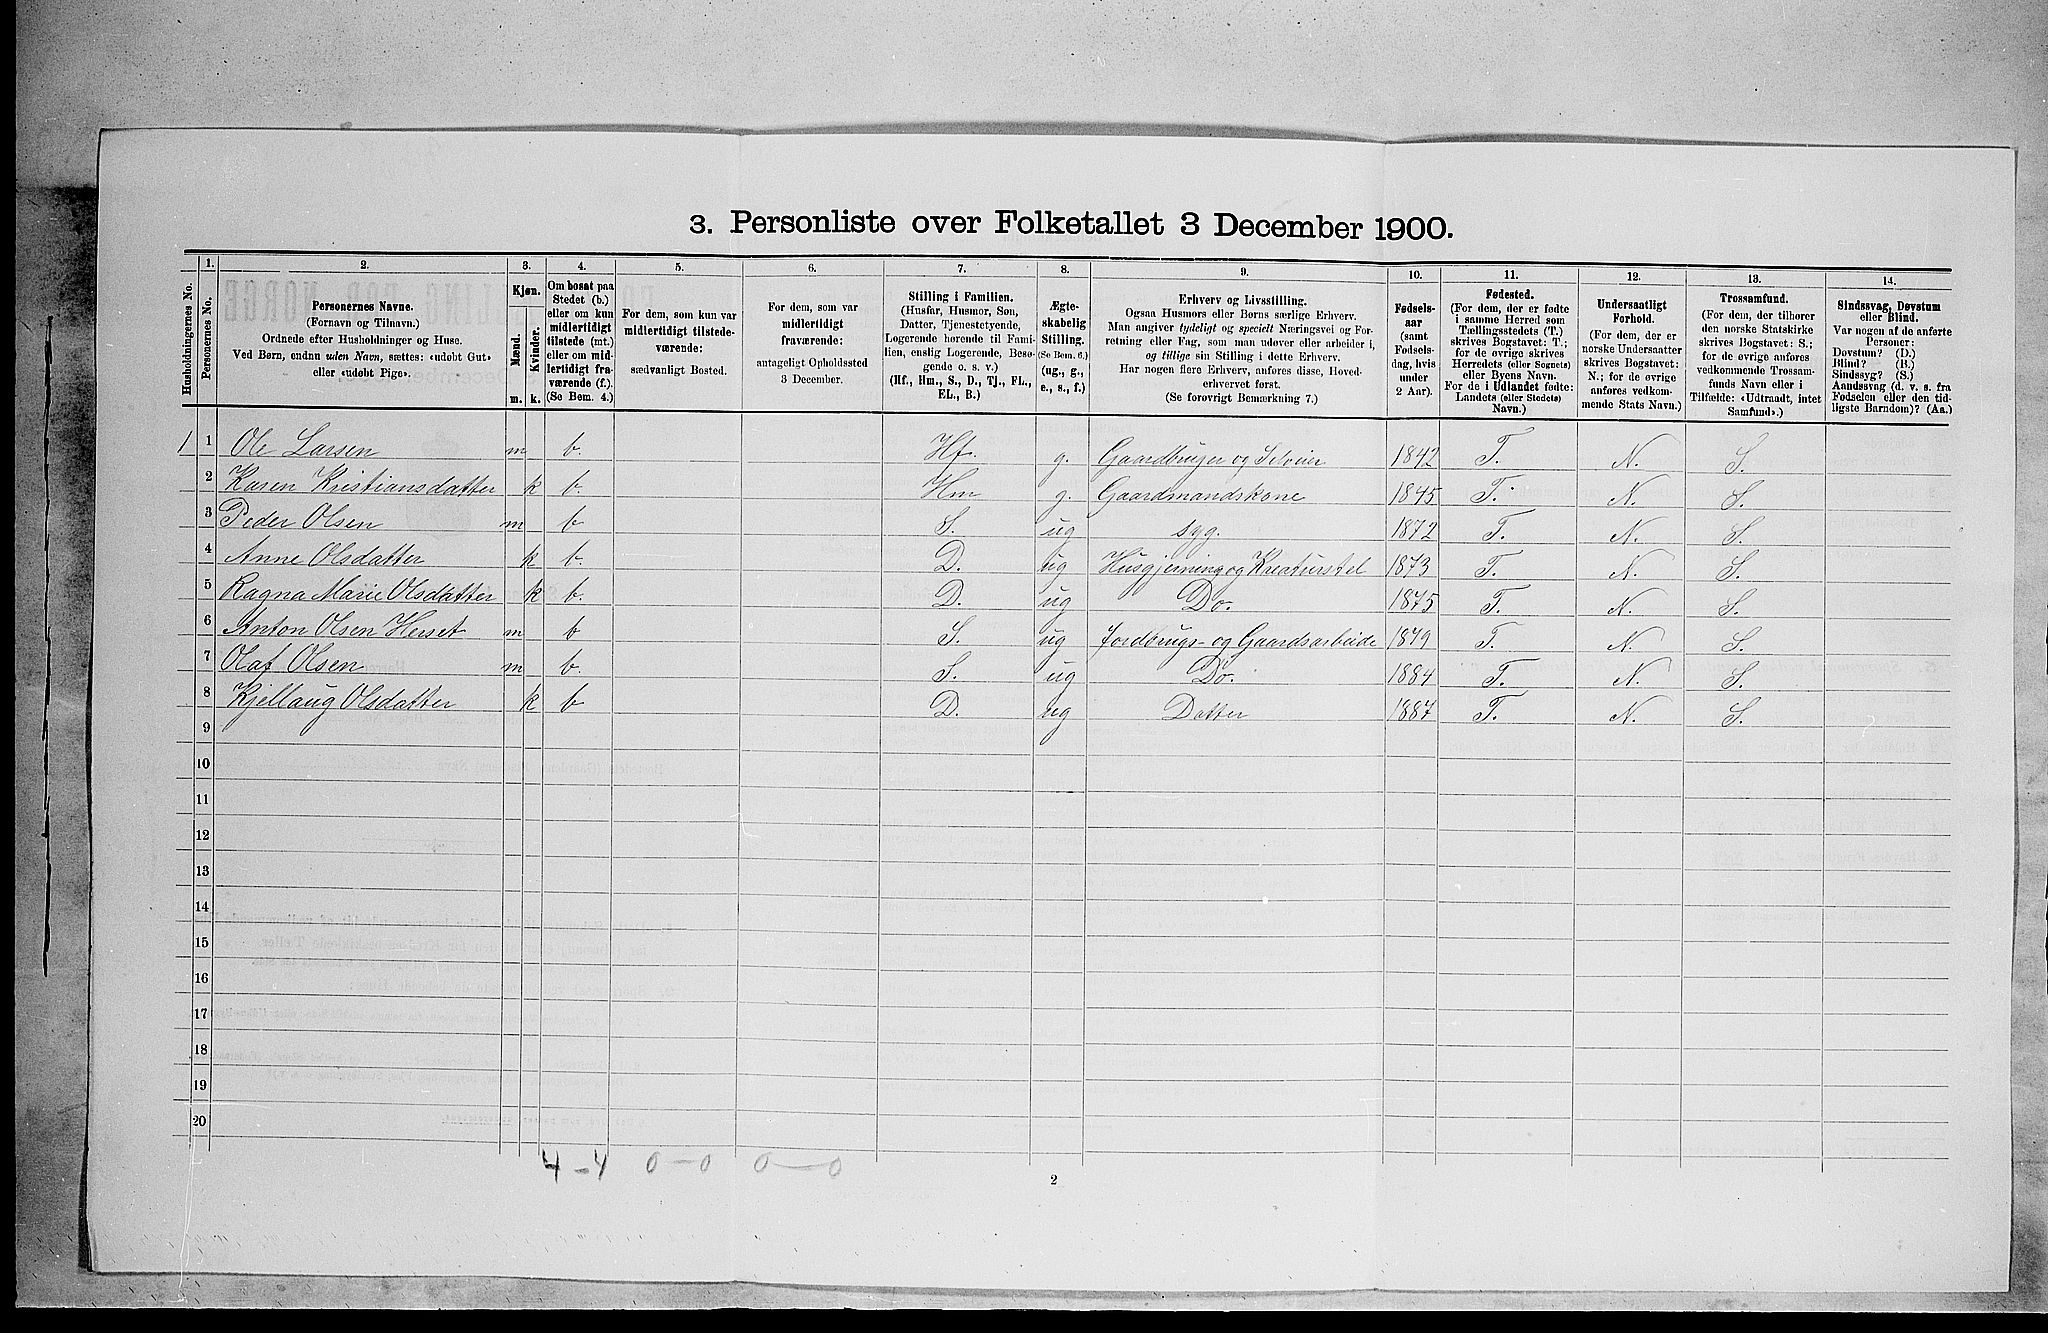 3. Personliste over Folketallet 3 December 1900.
Husholdningernes No.
1.
Personernes No.
2.
Personernes Navne.
(Fornavn og Tilnavn.)
Ordnede efter Husholdninger og Huse.
Ved Børn, endnu uden Navn, sættes: «udøbt Gut»
eller «udøbt Pige».
3.
Kjøn.
Mænd.
Kvinder.
m.
k.
4.
Om bosat paa
Stedet (b.)
eller om kun
midlertidigt
tilstede (mt.)
eller om mid-
lertidigt fra-
værende (f.).
(Se Bem. 4.)
5.
For dem, som kun var
midlertidigt tilstede-
værende:
sædvanligt Bosted.
6.
For dem, som var
midlertidigt
fraværende:
antageligt Opholdssted
3 December.
7.
Stilling i Familien.
(Husfar, Husmor, Søn,
Datter, Tjenestetyende,
Logerende hørende til Fami-
lien, enslig Logerende, Besø-
gende o. s. v.)
(Hf., Hm., S., D., Tj., FL.,
EL., B.)
8.
Ægte-
skabelig
Stilling.
(Se Bem. 6.)
(ug., g.,
e., s., f.)
9.
Erhverv og Livsstilling.
Ogsaa Husmors eller Børns særlige Erhverv.
Man angiver tydeligt og specielt Næringsvei og For-
retning eller Fag, som man udøver eller arbeider i,
og tillige sin Stilling i dette Erhverv.
Har nogen flere Erhverv, anføres disse, Hoved-
erhvervet først.
(Se forøvrigt Bemærkning 7.)
10.
Fødsels-
aar
(samt
Fødsels-
dag, hvis
under
2 Aar).
11.
Fødested.
(For dem, der er fødte
i samme Herred som
Tællingsstedets (T.)
skrives Bogstavet: T.;
for de øvrige skrives
Herredets (eller Sognets)
eller Byens Navn.
For de i Udlandet fødte:
Landets (eller Stedets)
Navn.)
12.
Undersaatligt
Forhold.
(For dem, der er
norske Undersaatter
skrives Bogstavet:
N.; for de øvrige
anføres vedkom-
mende Stats Navn.)
13.
Trossamfund.
(For dem, der tilhører
den norske Statskirke
skrives Bogstavet: S.;
for de øvrige anføres
vedkommende Trossam-
funds Navn eller i
Tilfælde: «Udtraadt, intet
Samfund».)
14.
Sindssvag, Døvstum
eller Blind.
Var nogen af de anførte
Personer:
Døvstum? (D.)
Blind? (B.)
Sindssyg? (S.)
Aandssvag (d. v. s. fra
Fødselen eller den tid-
ligste Barndom)? (Aa.)
1 1 Ole Larsen m b. Hf. g. Gaardbruger og Selveier 1842 T. N. S.
2 Karen Kristiansdatter k b. Hm g. Gaardmandskone 1845 T. N. S.
3 Peder Olsen m b S. ug syg. 1872 T. N. S.
4 Anne Olsdatter k b. D. ug Husgjerning og Kreaturstel 1873 T. N. S.
5 Ragna Marie Olsdatter k b. D. ug Do. 1875 T. N. S.
6 Anton Olsen Herset m b S. ug Jordbrugs- og Gaardsarbeide 1879 T. N. S.
7 Olaf Olsen m b. S. ug Do. 1884 T. N. S.
8 Kjellaug Olsdatter k b D. ug Datter 1887 T. N. S.
9
10
11
12
13
14
15
16
17
18
19
20
4 - 4 0 - 0 0 - 0
2